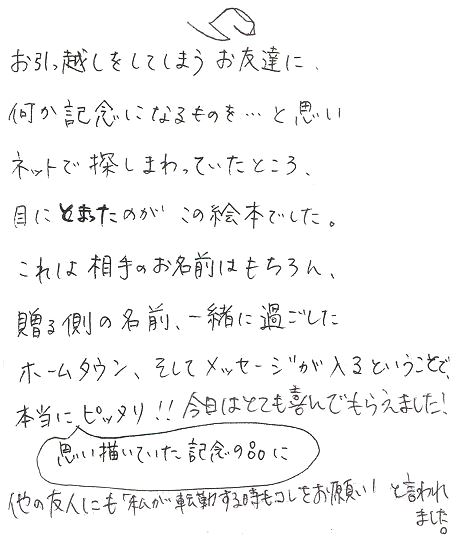 お引っ越しをしてしまう お友達に、
何か記念になるものを…と思い
ネットで探しまわっていたところ、
目にとまったのが この絵本でした。
これは相手のお名前はもちろん、
贈る側の名前、一緒に過ごした
ホームタウン、そしてメッセージが入るということで、
本当にピッタリ!! 今日はとても喜んでもらえました!
思い描いていた記念の品に
他の友人にも「私が転勤する時もコレをお願い!」と言われ
ました。